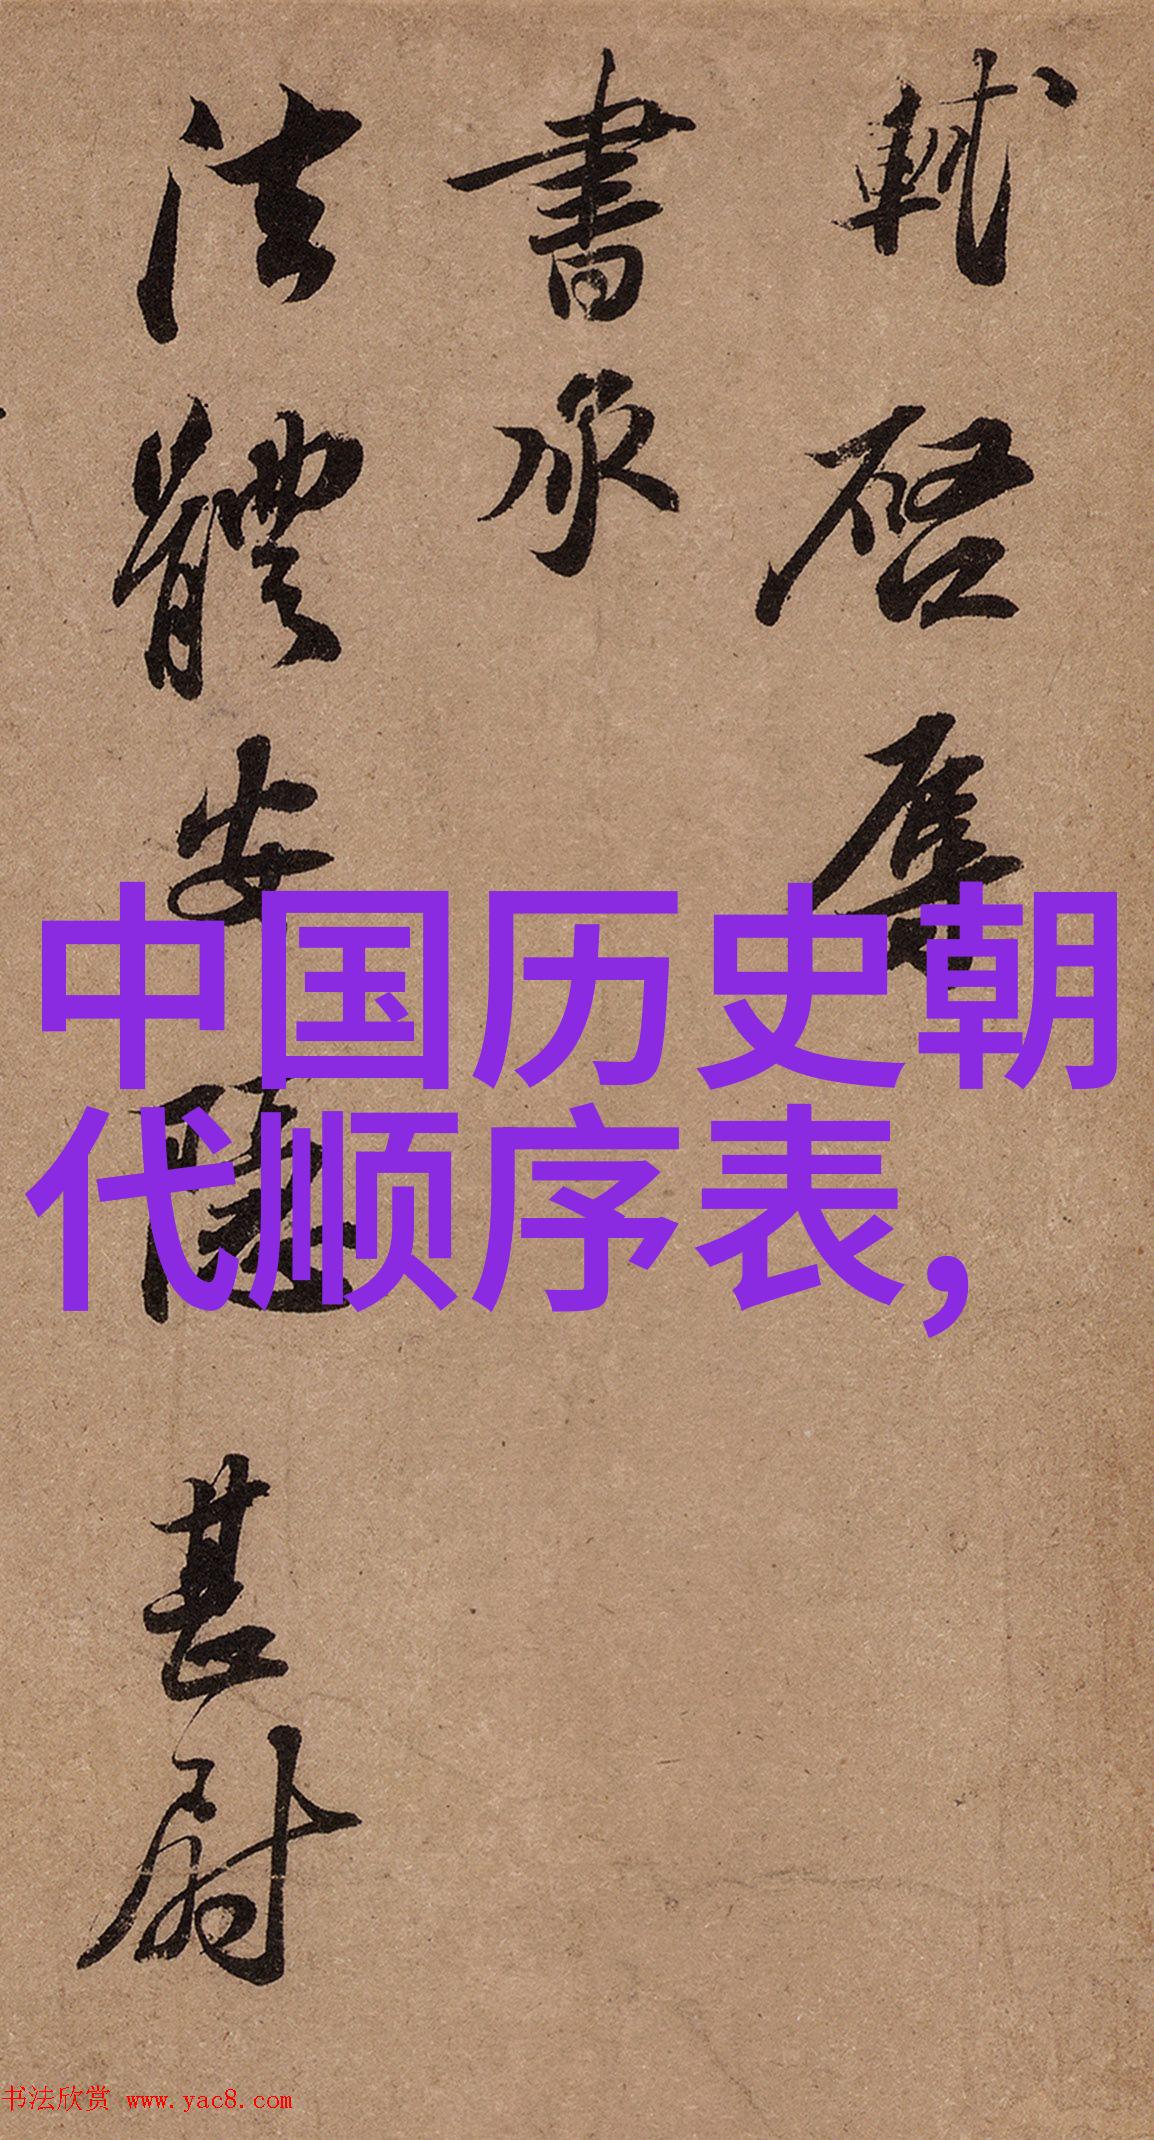 軾啓辱
書承
法體安隱甚尉
中国历史朝
代顺序表,
书法欣赏 www.yac8.com